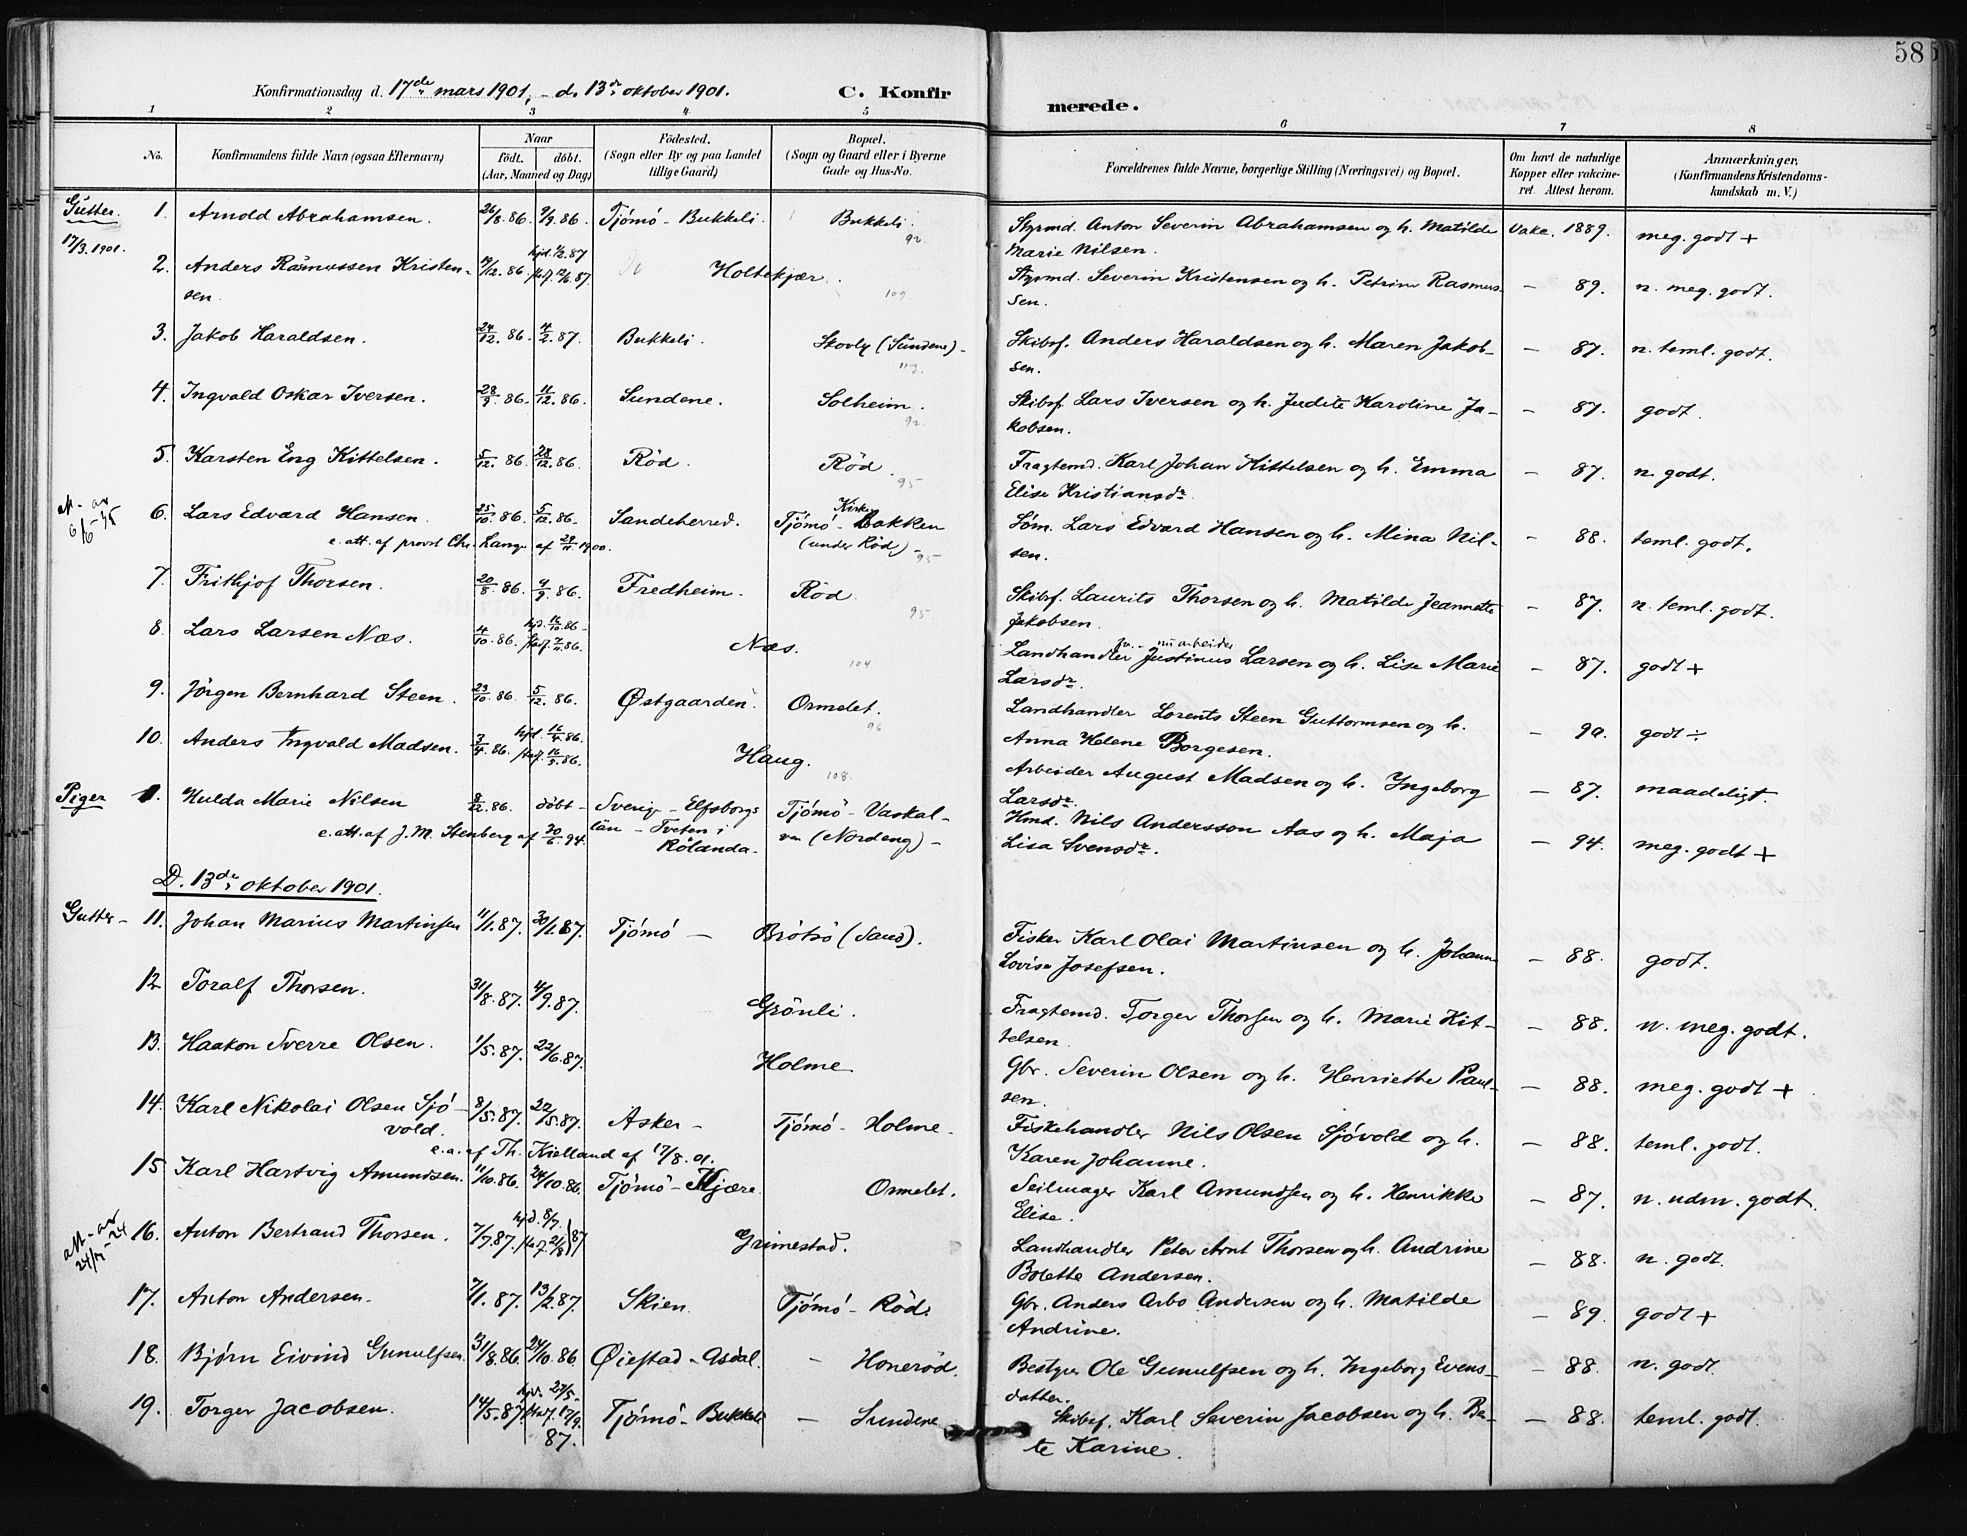 58
Konfirmationsdag d. 17de mars 1901, - d. 13de oktober 1901. C. Konfirmerede.
1 2 3 4 5 6 7 8
No. Konfirmandens fulde Navn (ogsaa Efternavn) Naar født. døbt. (Aar, Maaned og Dag) Fødested. (Sogn eller By og paa Landet tillige Gaard) Bopæl. (Sogn og Gaard eller i Byerne Gade og Hus-No. Forældrenes fulde Navne, borgerlige Stilling (Næringsvei) og Bopæl. Om havt de naturlige Kopper eller vakcineret. Attest herom. Anmærkninger. (Konfirmandens Kristendomskundskab m. V.)
Gutter. 1. Arnold Abrahamsen. 26/8. 86. 9/9. 86. Tjömö - Bukkeli. Bukkeli. 92. Styrmd. Anton Severin Abrahamsen og h. Matilde Marie Nilsen. Vakc. 1889. meg. godt +
17/3. 1901.
2. Anders Rasmussen Kristensen. 19/12. 86. hjd. 1/2. 87 stadf. 12/6. 87. Holtekjær. 109. Styrmd. Severin Kristensen og h. Petrine Rasmussen. - 89. n. meg. godt.
3. Jakob Haraldsen. 24/12. 86. 4/2. 87. Bukkeli. Skovly (Sundene) - 113. Skibsf. Anders Haraldsen og h. Maren Jakobsen. - 87. n. teml. godt.
4. Ingvald Oskar Iversen. 28/9. 86. 11/12. 86. Sundene. Solheim. 92. Skibsf. Lars Iversen og h. Judite Karoline Jakobsen. - 87. godt.
5. Karsten Eng Kittelsen. 5/12. 86. 28/12. 86. Röd. Röd. 95 Fragtemd. Karl Johan Kittelsen og h. Emma Elise Kristiansdr. - 87. n. godt.
att. av 6/6-45 6. Lars Edvard Hansen. 25/10. 86. 5/12. 86. Sandeherred. Tjömö - Kirkebakken (under Röd) - 95 Söm. Lars Edvard Hansen og h. Mina Nilsen. - 88. teml. godt.
e. att. af provst Chr. Lange af 29/11 1900.
7. Frithjof Thorsen. 20/8. 86. 9/9. 86. Fredheim. Röd. 95 Skibsf. Laurits Thorsen og h. Matilde Jeannette Jakobsen. - 87. n. teml. godt.
8. Lars Larsen Næs. 4/10. 86. Næs. 104 Landhandler nu arbeider Justinus Larsen og h. Lise Marie Larsdr. - 87. godt +
9. Jörgen Bernhard Steen. 23/10. 86. 5/12. 86. Østgaarden. Ormelet. 96 Landhandler Lorents Steen Guttormsen og h. Anna Helene Borgesen. - 90. godt ÷
10. Anders Ingvald Madsen. 3/4. 86. Haug. 108. Arbeider August Madsen og h. Ingeborg Larsdr. - 87. maadeligt.
Piger 1. Hulda Marie Nilsen 8/12. 86. döbt - Sverige - Elfsborgs län - Tveten i Rölanda. Tjömö - Vaskalven (Nordeng) - Hmd. Nils Andersson Aas og h. Maja Lisa Svensdr. - 94. meg. godt +
e. att. af J. M. Stenberg af 30/6. 94.
D. 13de oktober 1901.
Gutter - 11. Johan Marius Martinsen 11/1. 87. 30/1. 87. Tjömö - Brötsö (Sand). Fisker Karl Olai Martinsen og h. Johanne Lovise Josefsen. - 88. godt.
12 Toralf Thorsen. 31/8. 87. 4/9. 87. Grönli. Fragtemd. Torger Thorsen og h. Marie Kittelsen. - 88. n. meg. godt.
13. Haakon Sverre Olsen. 1/5. 87. 22/6. 87. Holme Gbr. Severin Olsen og h. Henriette Paulsen. - 88. meg. godt +
14. Karl Nikolai Olsen Sjövold. 8/5. 87. 22/5. 87. Asker - Tjömö - Holme. Fiskehandler Nils Olsen Sjövold og h. Karen Johanne. - 88. teml. godt.
e. a. af Th. Kielland af 17/8. 01.
15 Karl Hartvig Amundsen. 11/10. 86. 24/10. 86. Tjömö - Kjære. Ormelet. Seilmager Karl Amundsen og h. Henrikke Elise. - 87. n. udm. godt.
att. av 24/7-24 16. Anton Bertrand Thorsen. 7/7. 87. hjd. 8/7. stadf. 21/8 87 Grimestad. Landhandler Peter Arnt Thorsen og h. Andrine Bolette Andersen. - 88. n. godt.
17. Anton Andersen. 7/1. 87. 13/2. 87. Skien. Tjömö - Röd. Gbr. Anders Arbo Andersen og h. Matilde Andrine. - 89. godt +
18. Bjørn Eivind Gunulfsen. 31/8. 86. 24/10. 86. Øiestad - Asdal. - Honeröd. Bestyrer Ole Gunulfsen og h. Ingeborg Evensdatter. - 88. n. godt.
19. Torger Jacobsen. 14/5. 87. hjd. 27/5. stadf. 17/9. 87. Tjömö - Bukkeli - Sundene Skibsf. Karl Severin Jacobsen og h. Beate Karine. - 88. teml. godt.